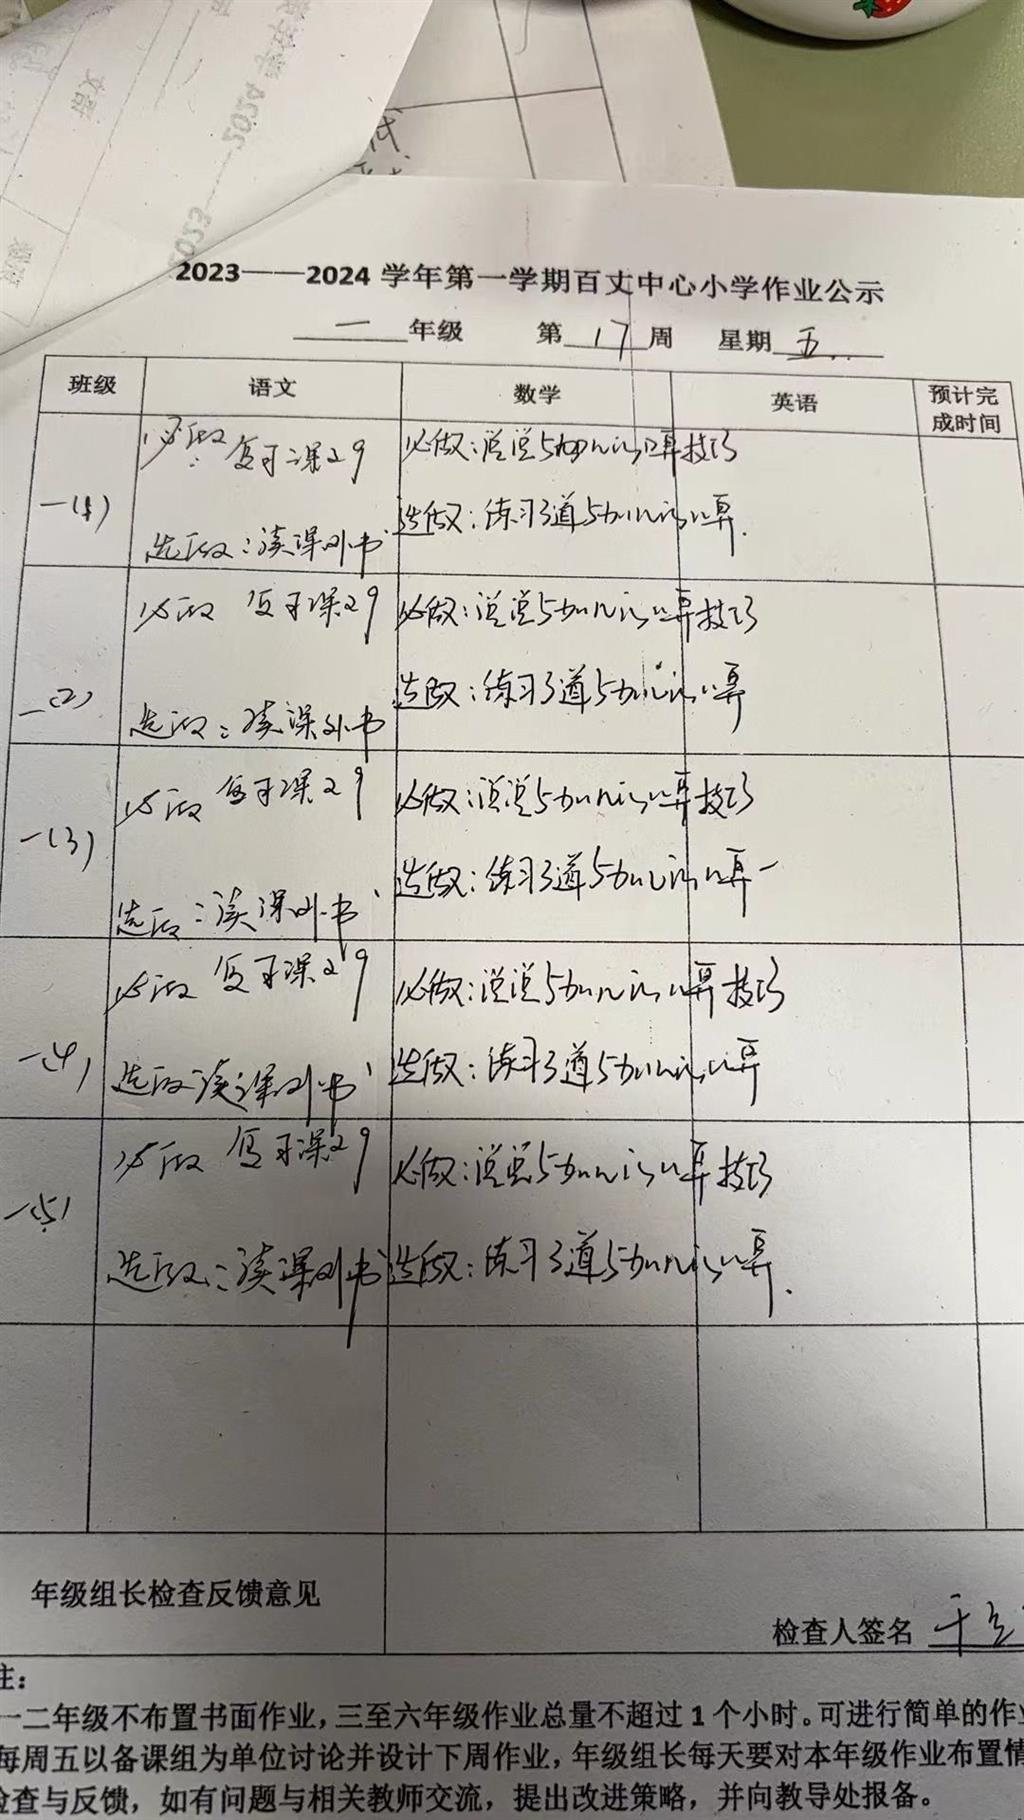 2023——2024 学年第一学期百丈中心小学作业公示
一 年级 第 17 周 星期 五
班级 语文 数学 英语 预计完成时间
必做: 复习课29 必做:说说5加几的口算技巧
一(1)
选做:读课外书 选做:练习3道5加几的口算.
必做 复习课29 必做:说说5加几的口算技巧
一(2)
选做:读课外书 选做:练习3道5加几的口算
必做 复习课29 必做:说说5加几的口算技巧
一(3)
选做:读课外书 选做:练习3道5加几的口算
必做 复习课29 必做:说说5加几的口算技巧
一(4)
选做读课外书 选做:练习3道5加几的口算
必做 复习课29 必做:说说5加几的口算技巧
一(5)
选做:读课外书 选做:练习3道5加几的口算.
年级组长检查反馈意见
检查人签名
注:
一二年级不布置书面作业,三至六年级作业总量不超过 1 个小时。可进行简单的作业
每周五以备课组为单位讨论并设计下周作业,年级组长每天要对本年级作业布置情
检查与反馈,如有问题与相关教师交流,提出改进策略,并向教导处报备。